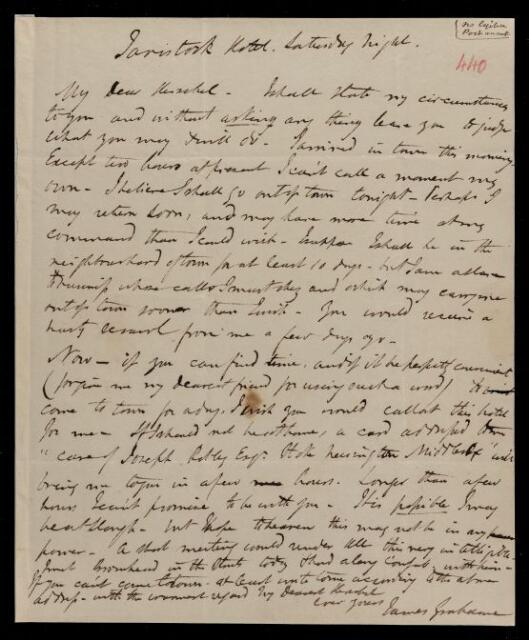 No
Post mark
440
Tavistock Hotel. Saturday Night.
My Dear Herschel - I shall state my circumstances
to you and without asking any thing leave you to judge
what you may do. I arrived in town this morning.
Except two hours at present I can't call a moment my
own - I believe I shall go out of town tonight - Perhaps I
may return soon, and may have more time at my
command than I could wish - I suppose I shall be in the
neighbourhood of town for at least 10 days - but I am
whose call I must obey and which may carry me
out of town sooner than I wish - You would receive a
hasty from me a few days ago -
Now - if you can find time, and if it be perfectly convenient
(forgive me my dearest friend for using such a word) to
come to town for a day, I wish you would call at this hotel
for me - If I should not be at home, a card addressed
"care of Joseph Esqr. Stoke Newington Middlesex" will
bring me to you in a few hours. Longer than a few
hours I can't promise to be with you - It is possible I may
be at Slough - but I hope to heaven this may not be in my
power - A short meeting would render all this very intelligible
I met Bromhead in the Street today & had a long confab with him -
If you can't come to town - at least write to me according to the above
address - with the warmest regard My Dearest Herschel
Ever yours
James Grahame